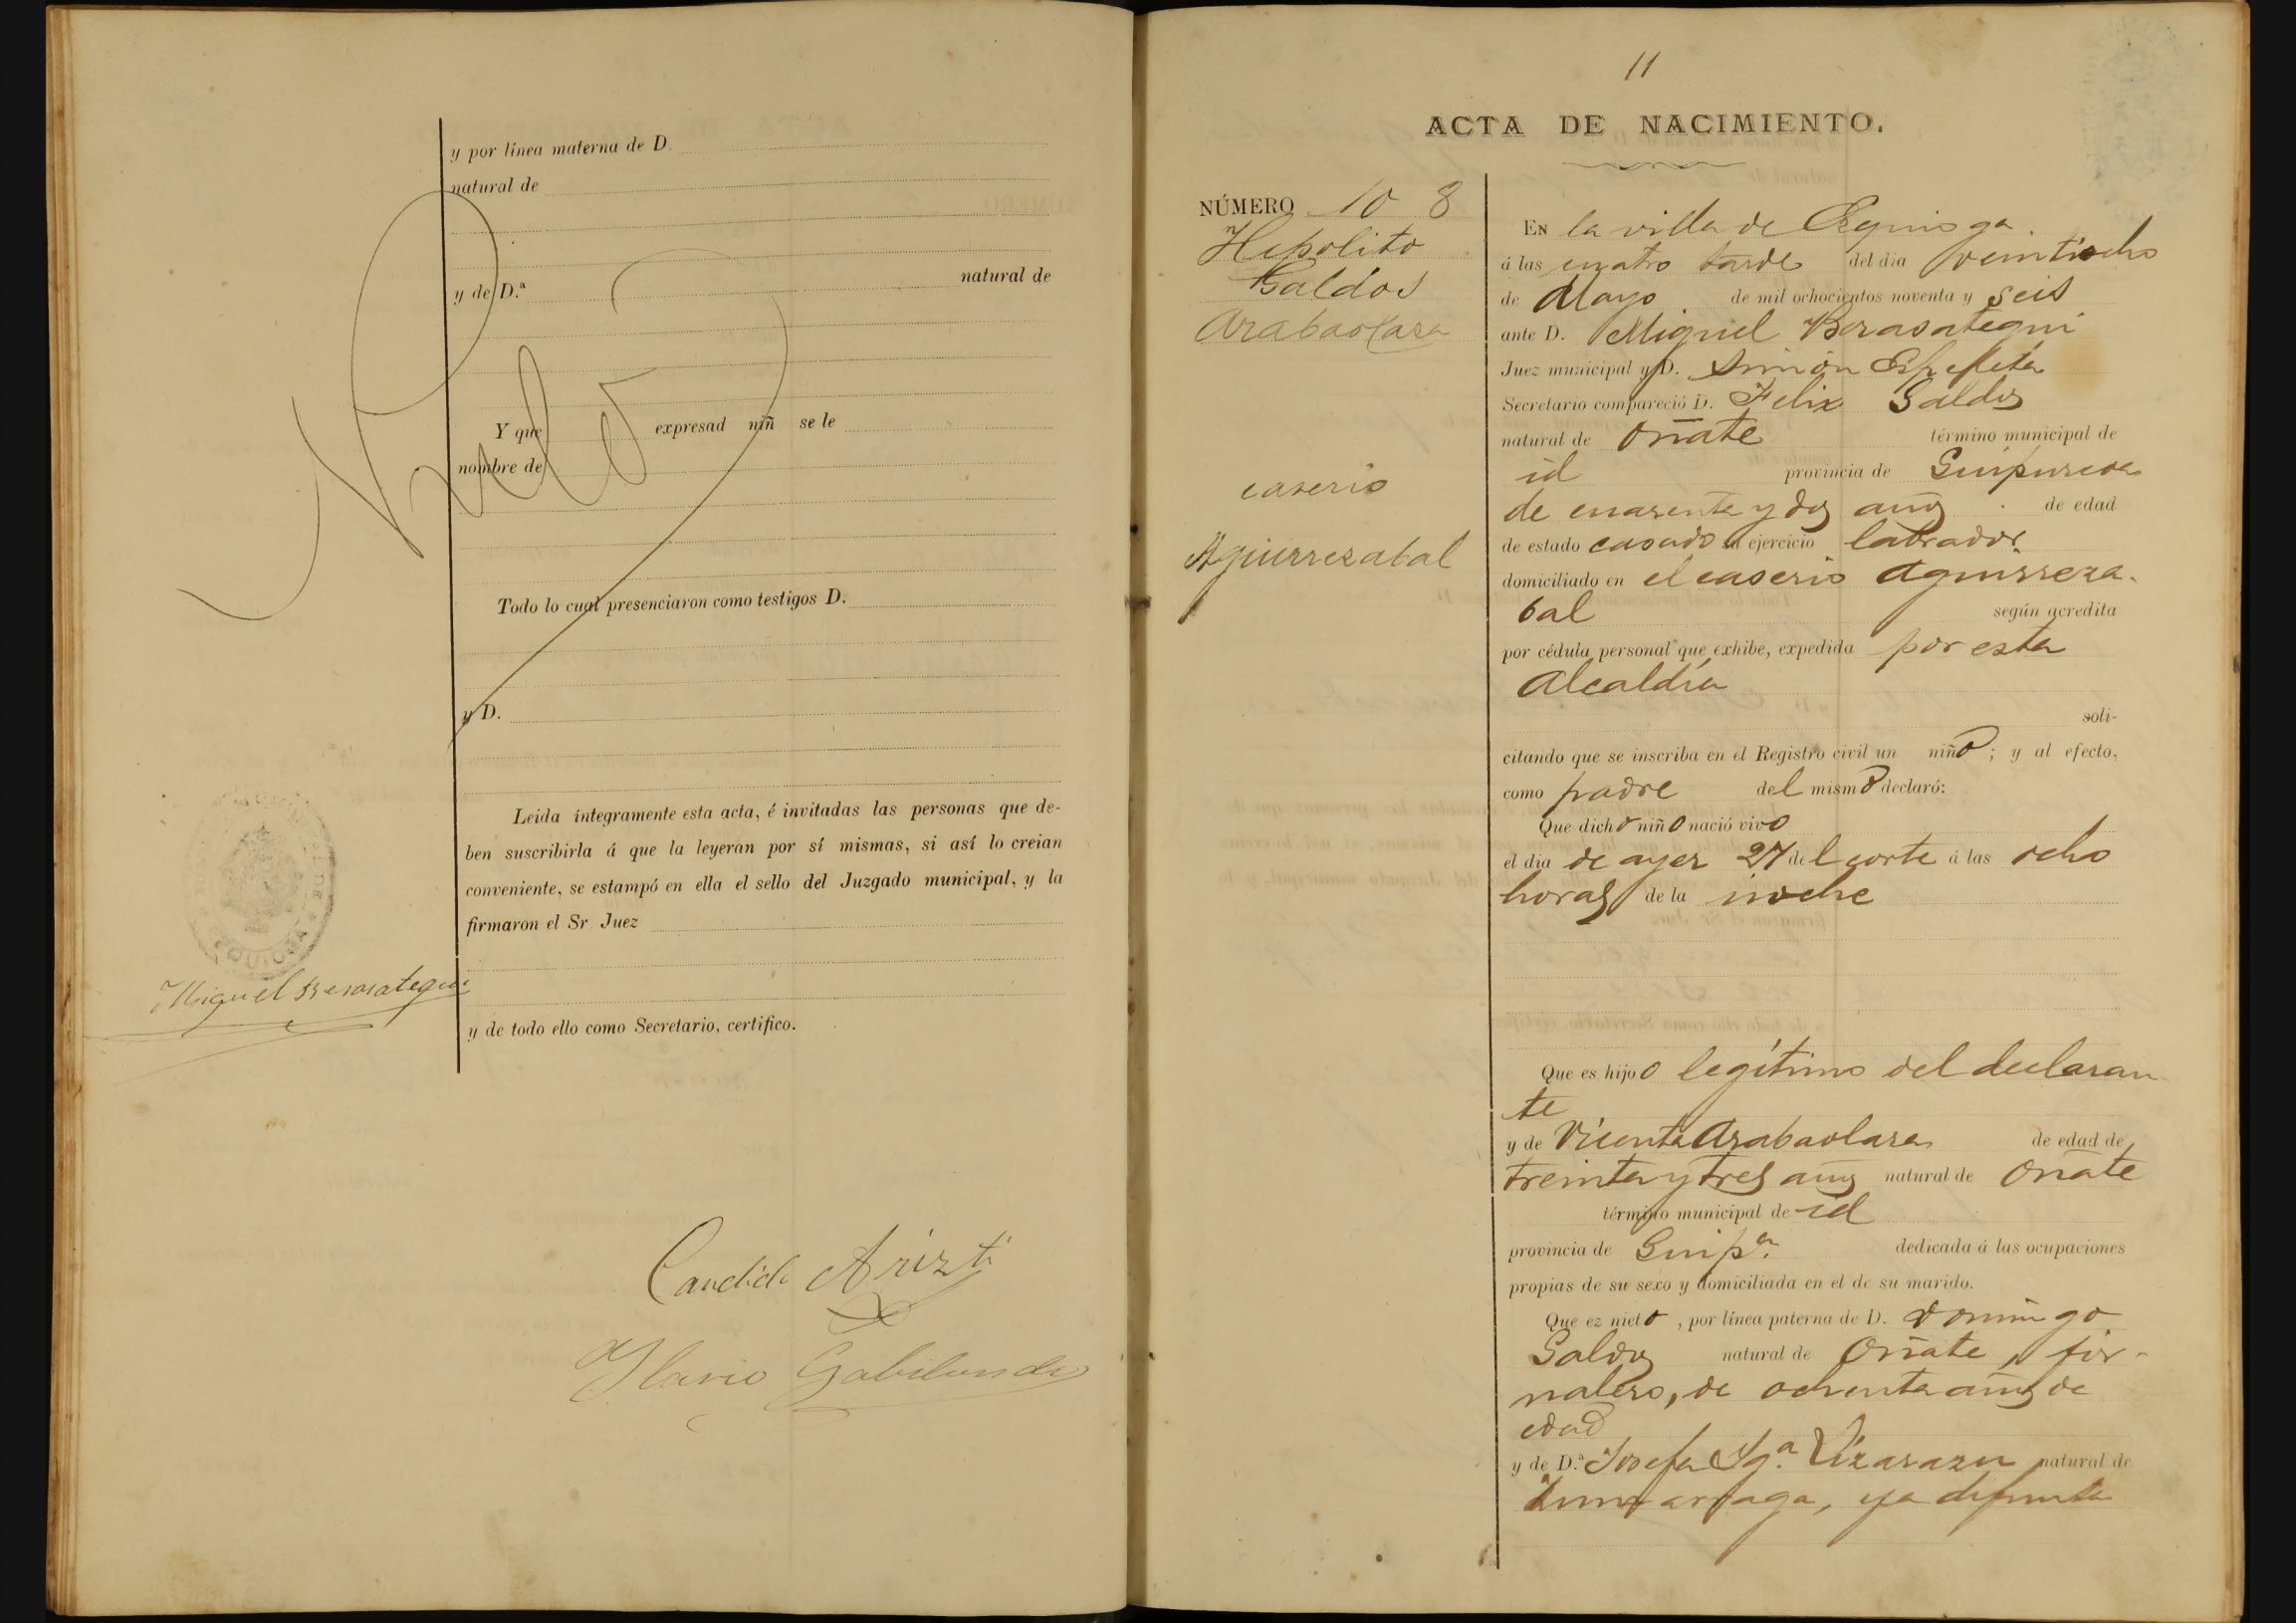 y por línea materna de D.
natural de
y de D.ª natural de
Nulo
Y que expresad niñ se le
nombre de
Todo lo cual presenciaron como testigos D.
y D.
Leida íntegramente esta acta, é invitadas las personas que de-
ben suscribirla á que la leyeran por sí mismas, si así lo creian
conveniente, se estampó en ella el sello del Juzgado municipal, y la
firmaron el Sr Juez
Miguel Berasategui
y de todo ello como Secretario, certifico.
Candido Arizti
Ilario Gabilondo
11
ACTA DE NACIMIENTO.
NÚMERO 10 8
Hipolito
Galdos
Arabaolaza
caserio
Aguirrezabal
En la villa de Ezquioga
á las cuatro tarde del dia veintiocho
de Mayo de mil ochocientos noventa y seis
ante D. Miguel Berasategui
Juez municipal y D. Simón Ezpeleta
Secretario compareció D. Felix Galdos
natural de Oñate término municipal de
id provincia de Guipuzcoa
de cuarenta y dos años de edad
de estado casado su ejercicio labrador
domiciliado en el caserio Aguirreza-
bal según acredita
por cédula personal que exhibe, expedida por esta
Alcaldía
soli-
citando que se inscriba en el Registro civil un niño; y al efecto,
como padre del mismo declaró:
Que dicho niño nació vivo
el dia de ayer 27 del corte á las ocho
horas de la noche
Que es hijo legítimo del declaran
te
y de Vicenta Arabaolaza de edad de
treinta y tres años natural de Oñate
término municipal de id
provincia de Guip.ª dedicada á las ocupaciones
propias de su sexo y domiciliada en el de su marido.
Que ez nieto, por línea paterna de D. Domingo
Galdos natural de Oñate, jor-
nalero, de ochenta años de
edad
y de D.ª Josefa Ig.ª Lizarazu natural de
Zumarraga, ya difunta